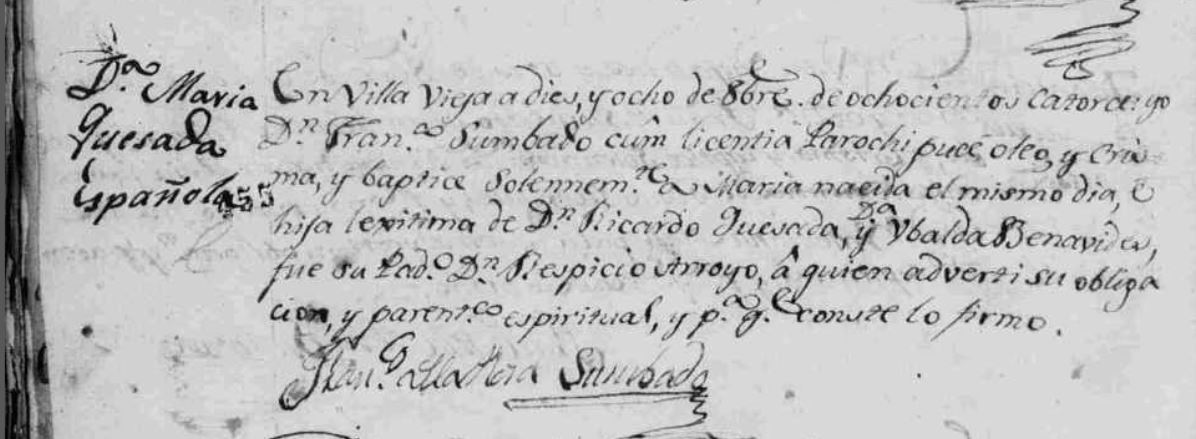 D.ª Maria
Quesada
Española
En Villa Vieja a dies, y ocho de 8bre. de ochocientos Catorce. yo
D.n Fran.co Sumbado cum licentia Parochi puce oleo, y Cris
ma, y baptice Solennem.te a Maria nacida el mismo dia, é
hija lexitima de D.n Ricardo Quesada, y D.ª Ybalda Benavides,
fue su Pad.o D.n Respicio Arroyo, â quien adverti su obliga
cion, y parent.co espiritual, y p.ª q.e conste lo firmo.
Fran.co Sumbado